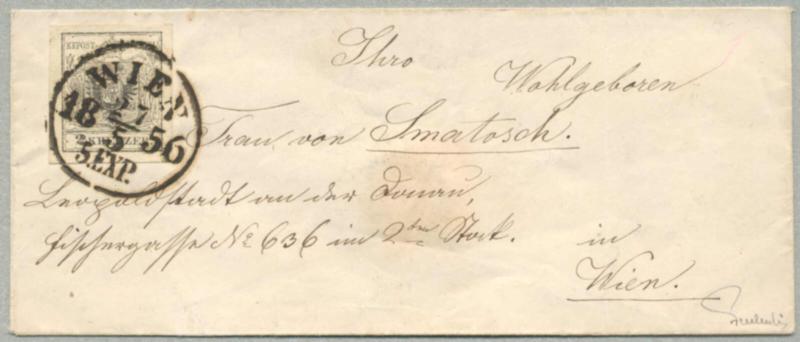 KKPOST-
WIEN
18 27/5 56
2 KREUZER
5.EXP.
Ihro
Wohlgeboren
Frau von Smatosch.
Leopoldstadt an der Donau,
Fischergasse No 636 im 2ten Stock.
in
Wien.